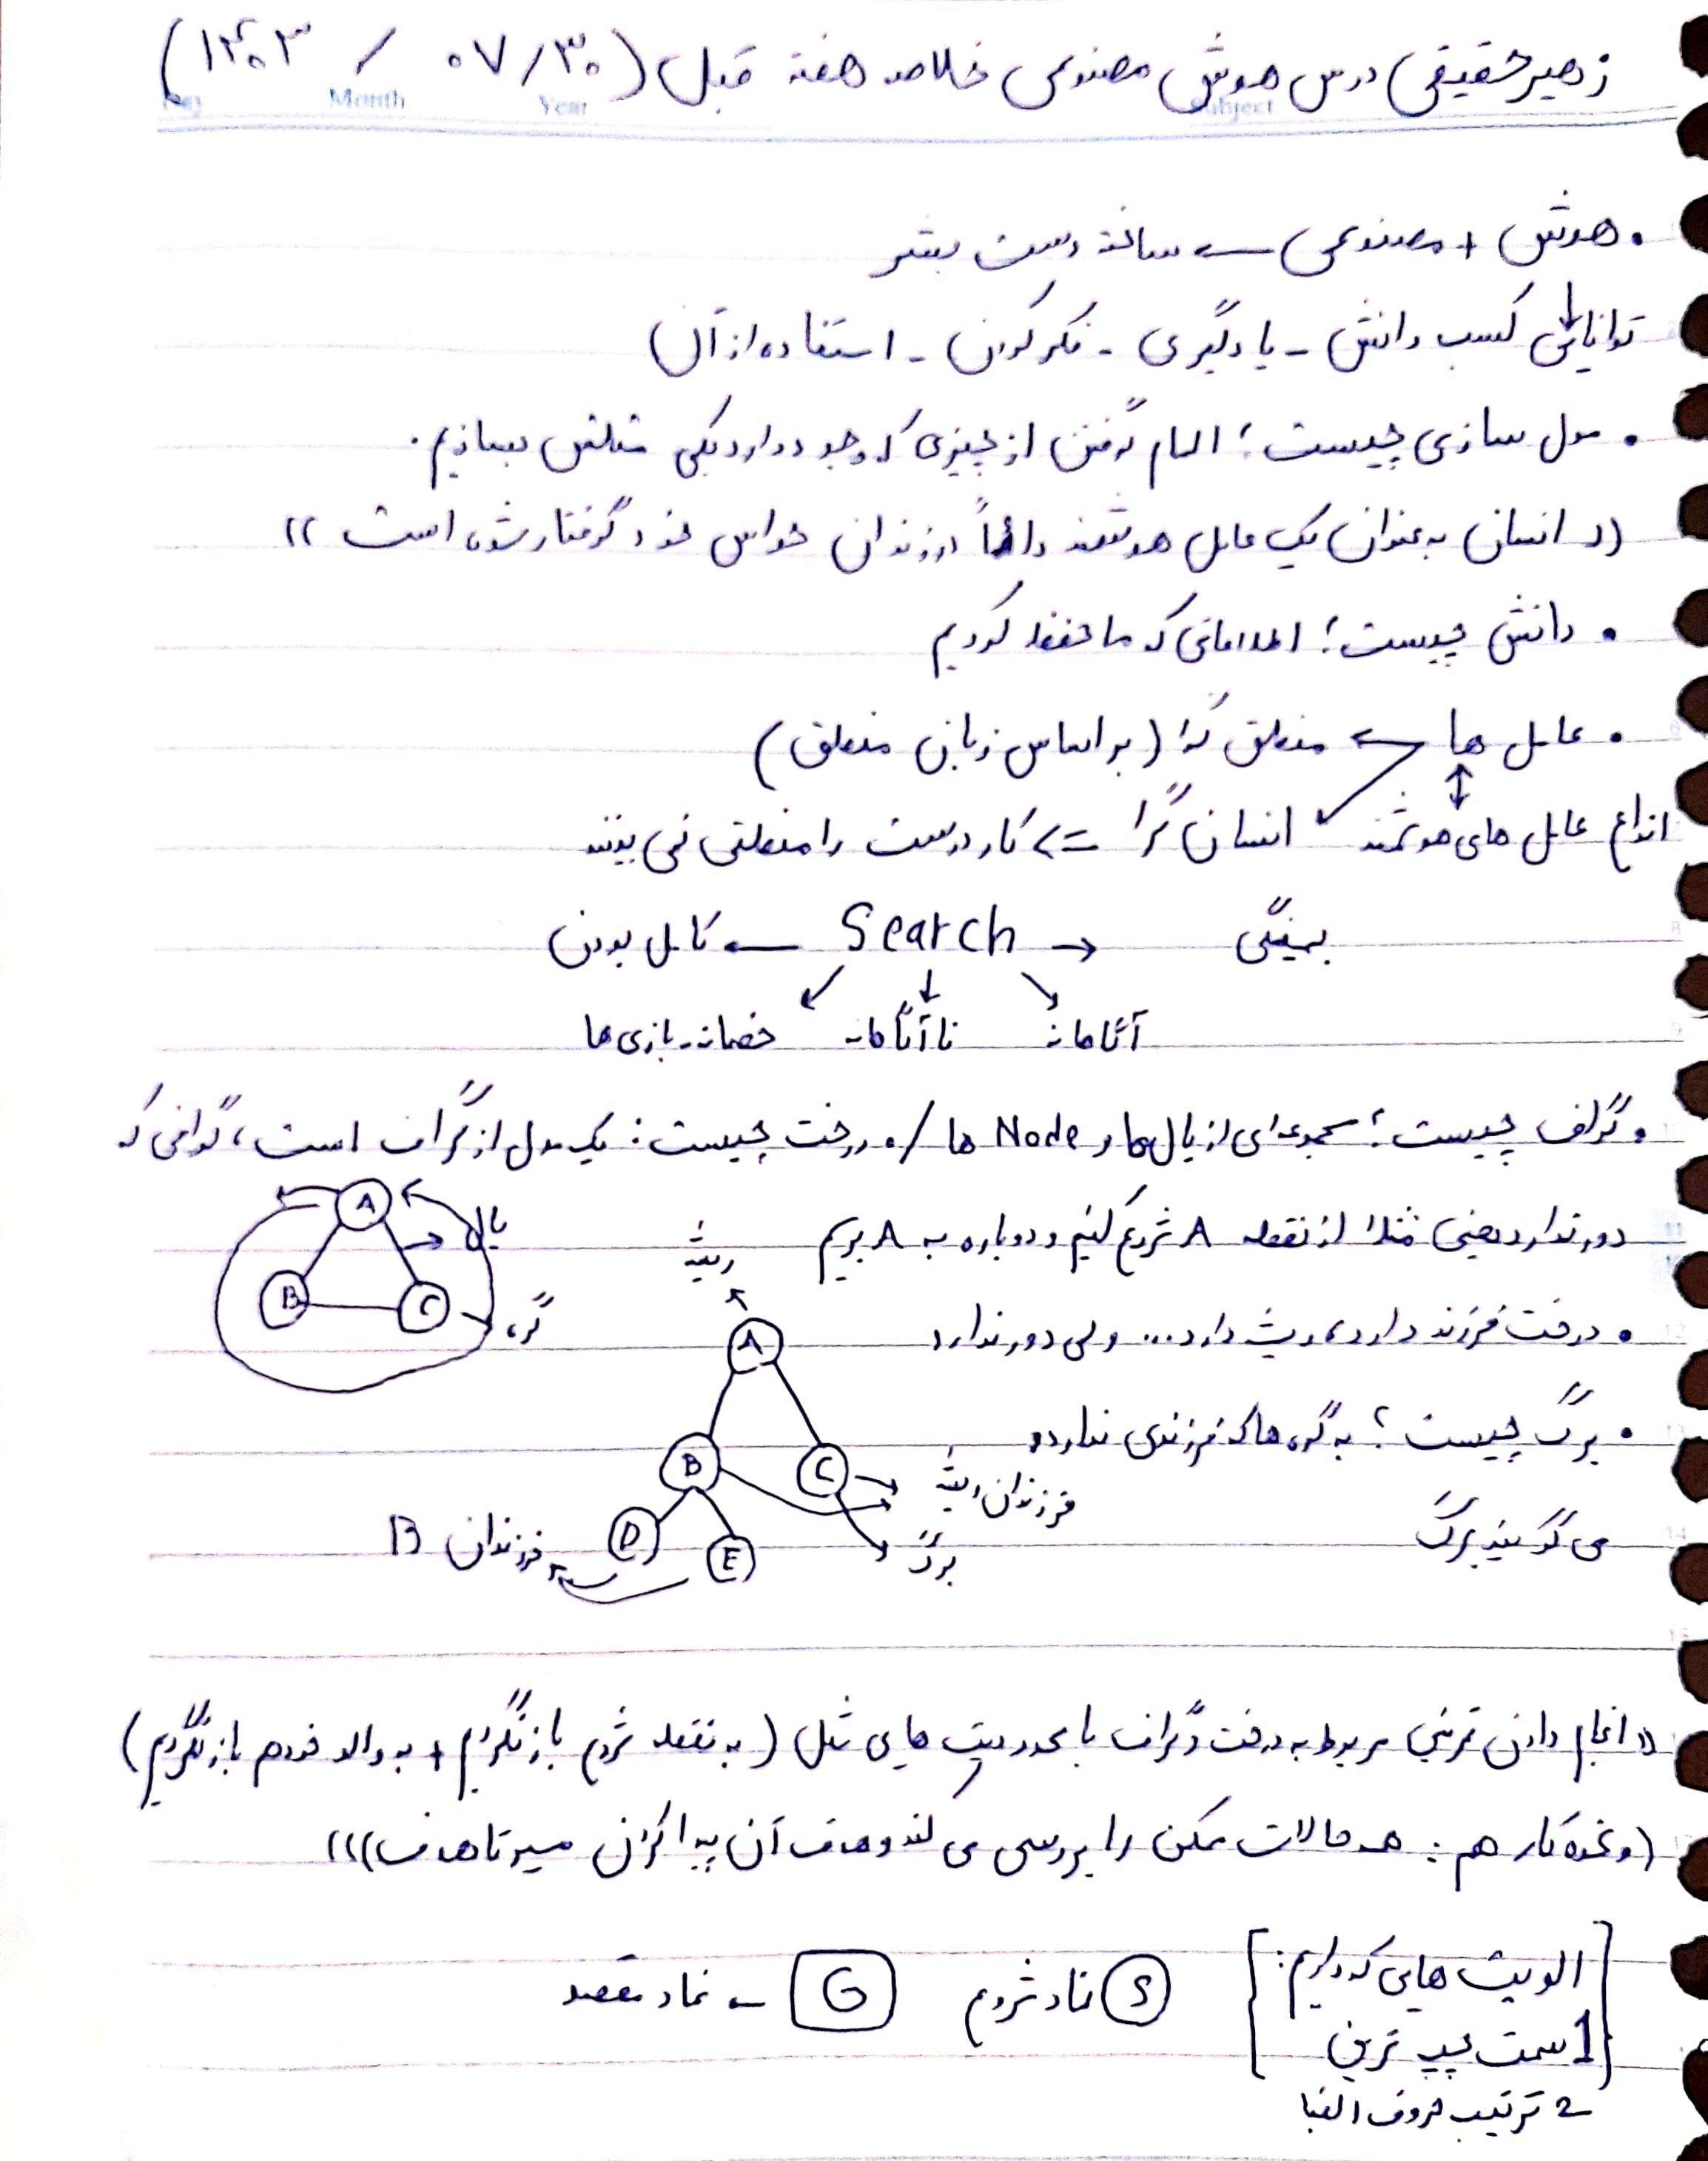 زهیر حقیقی درس هوش مصنوعی خلاصه هفته قبل (۱۴۰۳ / ۰۷/۳۰)
Month Year Subject
• هوش + مصنوعی ← ساخته دست بشر
↓
توانایی کسب دانش - یادگیری - فکر کردن - استفاده از آن
• مدل سازی چیست؟ الهام گرفتن از چیزی که وجود دارد یکی مثلش بسازیم.
(( انسان به عنوان یک عامل هوشمند دائماً در زندان حواس خود گرفتار شده است ))
• دانش چیست؟ اطلاعاتی که ما حفظ کردیم
• عامل ها ← منطق گرا (بر اساس زبان منطق)
انواع عامل های هوشمند انسان گرا => کار درست را منطقی نمی بینند
بهینگی ← Search → کامل بودن
آگاهانه ناآگاهانه خصمانه - بازی ها
• گراف چیست؟ مجموعه ای از یال ها و Node ها / • درخت چیست: یک مدل از گراف است، گرافی که
دور ندارد یعنی مثلا از نقطه A شروع کنیم و دوباره به A بریم
A
یال
B C گره
ریشه
• درخت فرزند دارد، ریشه دارد... ولی دور ندارد
A
• برگ چیست؟ به گره ها که فرزندی ندارد
B C فرزندان ریشه
می گویند برگ
D E فرزندان B برگ
(( انجام دادن تمرینی مربوط به درخت و گراف با محدودیت هایی مثل (به نقطه شروع بازنگردیم + به والد خود هم بازنگردیم)
(و نحوه کار هم: همه حالات ممکن را بررسی می کند و هدف آن پیدا کردن مسیر تا هدف)))
[الویت هایی که داریم:] S نماد شروع G ← نماد مقصد
1 سمت چپ ترین
2 ترتیب حروف الفبا